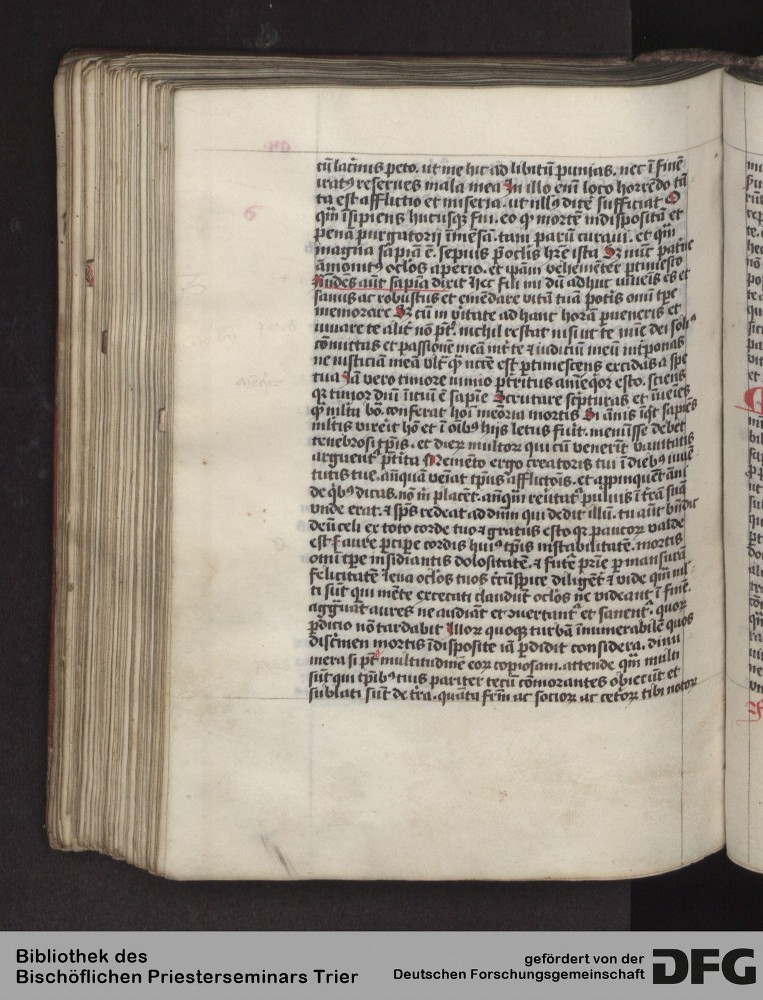 cū lac̄mis peto. ut me hic ad libitū punias. nec ī finē
iratꝰ reserues mala mea In illo enī loco horrēdo tā
ta est afflictio et miseria. ut nullꝰ dicē sufficiat O
qm̄ īsipiens hucusqꝫ fui. eo qꝛ mortē indispositā et
pena purgatorii īmēsā. tam parū curaui. et qm̄
magna sapīa ē. sepius p̄ oclīs hr̄e ista Sꝫ nūc pat̄ne
āmonitꝰ oclos aperio. et ip̄am vehemēter ptimesco
Rn̄dēs aūt sapīa dixit Hec fili mi dū adhuc iuueīs es et
sanus ac robustus et emēdare vitā tuā potis omī tp̄e
memorare Sꝫ cū in v̄itate ad hanc horā pueneris et
iuuare te alit̄ nō pt̄. nichil restat nisi ut te mīe dei solꝰ
cōmittas et passionē meā int̄ te ⁊ iudiciū meū int̄ponas
ne iusticiā meā vlt̄ qꝫ ncē est ptimescens excidas a spe
tua Iā vero timore nimio pt̄ritus āneqꝫor esto. sciens
qꝛ timor dn̄i īiciū ē sapīe Scrutare sc̄pturas et īueīes
qꝫ mlt̄a bō. conferat hoī meōria mortis Si ānis īqt̄ sapiēs
mltis vixeīt hō et ī oībꝰ hijs letus fuīt. meminisse debet
tenebrosi tp̄is. et dieꝝ multoꝝ qui cū venerīt vanitatis
arguent̄ pt̄ita Memēto ergo creatoris tui ī diebꝰ iuuē
tutis tue. anꝙuā veīat tp̄us afflictoīs. et appinquēt āni
de qꝫbꝰ dicas. nō m̄ placēt. anꝙm̄ reūtat̄ puluis ī t̄rā suā
vnde erat. ⁊ sp̄s redeat ad dn̄m qui dedit illū. tu aūt bn̄dic
deū celi ex toto corde tuo ⁊ gratus esto qꝛ paucoꝝ valde
est ꝼ aure pcipe cordis huiꝰ tp̄is instabilitatē. mortis
omī tp̄e insidiantis dolositatē. ⁊ fut̄e pr̄ie pmansurā
felicitatē Leua oclos tuos circūspice diligēt̄ ⁊ vide qm̄ ml
ti sūt qui mēte excecati claudūt oclōs ne videant ī finē.
aggͣuāt aures ne audiāt et ꝯuertant̄ et sanent̄. quoꝝ
pdicio nō tardabit Illoꝝ quoqꝫ turbā īnumerabilē quos
disc̄men mortis īdisposite iā pdidit considera. dinu
mera si pt̄ multitudinē eoꝝ copiosam. attende qm̄ multi
sūt qui tp̄ibꝰ tuis pariter tecū cōmorantes obierūt et
sublati sūt de t̄ra. quāta fr̄m ac socioꝝ ac cet̄oꝝ tibi notoꝝ
Bibliothek des
Bischöflichen Priesterseminars Trier
gefördert von der
Deutschen Forschungsgemeinschaft
DFG